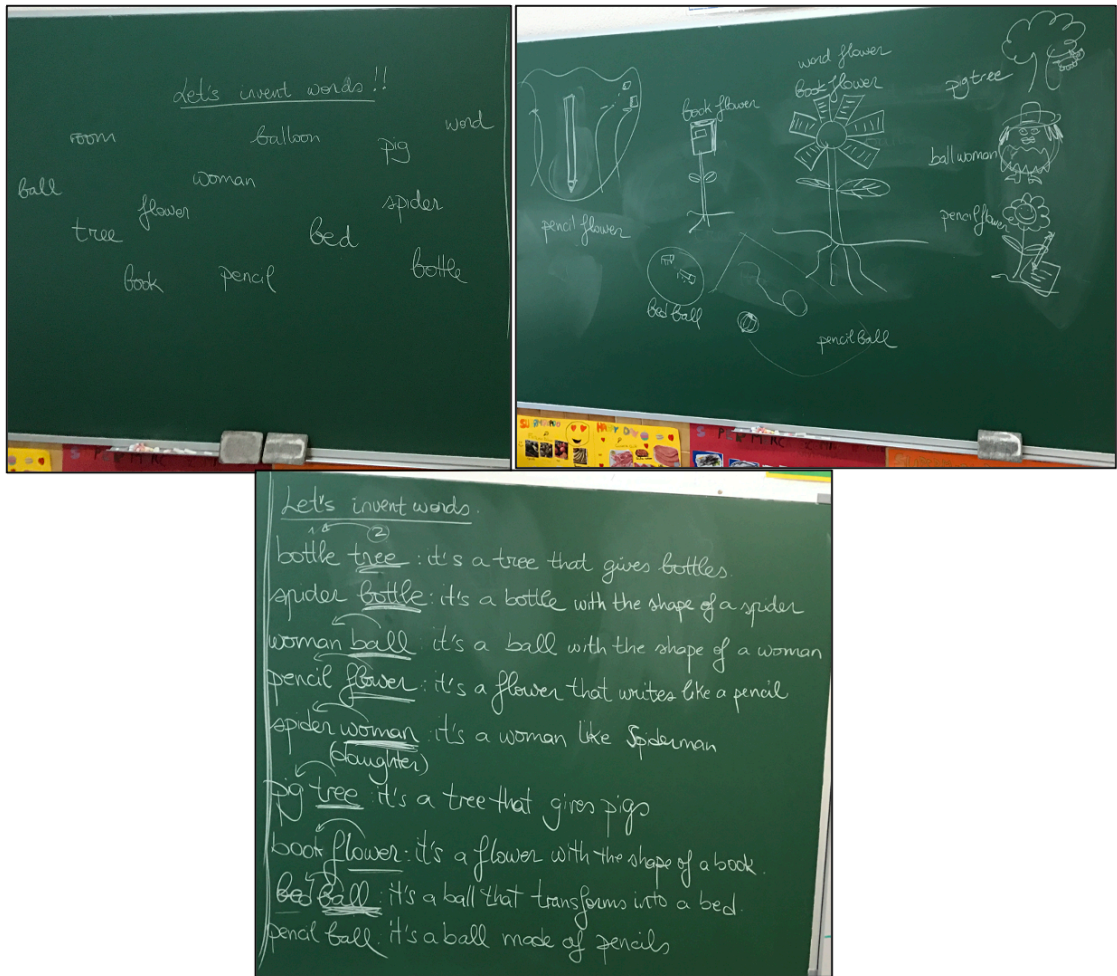 Let's invent words!!
room balloon word
pig
ball woman
flower spider
tree bed
book pencil bottle
word flower
book flower
book flower
pig tree
ball woman
pencil flower
pencil flower
bed ball
pencil ball
Let's invent words.
1 2
bottle tree: it's a tree that gives bottles.
spider bottle: it's a bottle with the shape of a spider
woman ball: it's a ball with the shape of a woman
pencil flower: it's a flower that writes like a pencil
spider woman: it's a woman like Spiderman
(daughter)
pig tree: it's a tree that gives pigs
book flower: it's a flower with the shape of a book.
bed ball: it's a ball that transforms into a bed.
pencil ball: it's a ball made of pencils